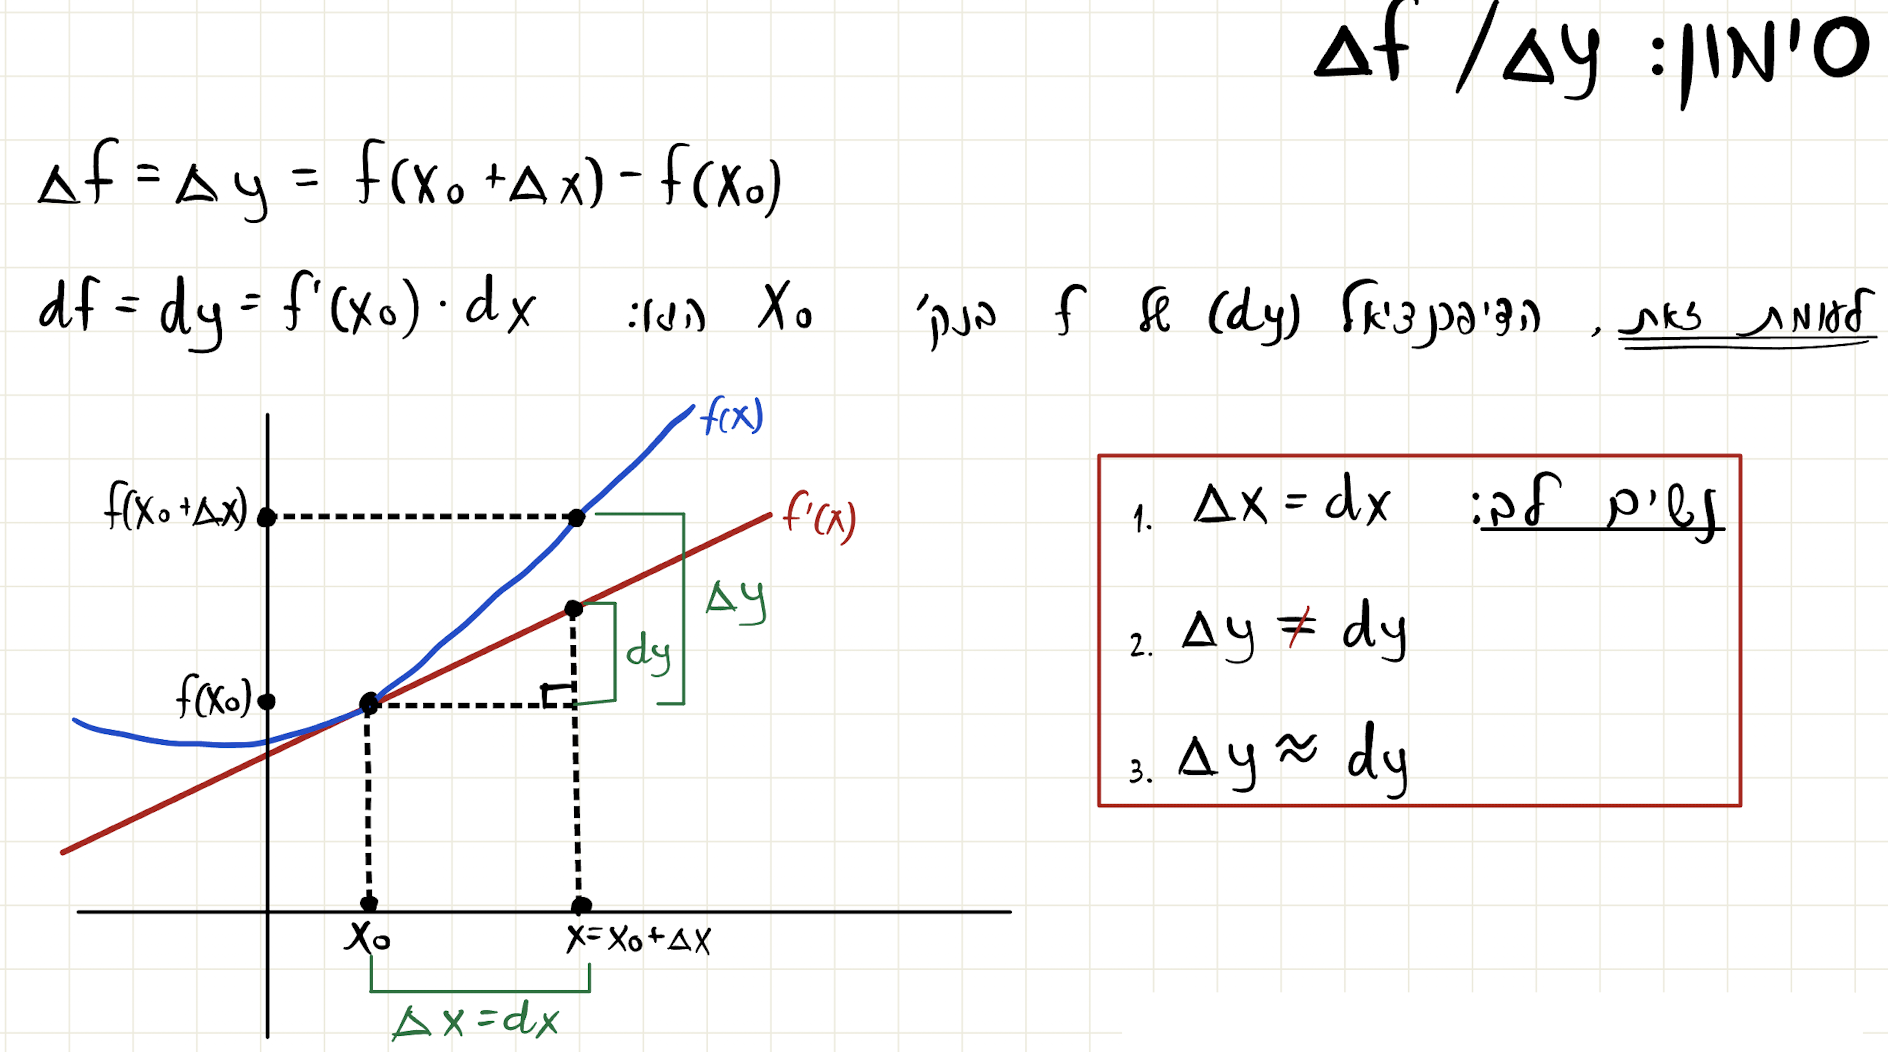 סימון: Δf / Δy
Δf = Δy = f(x₀ + Δx) - f(x₀)
לעומת זאת, הדיפרנציאל (dy) של f בנק' x₀ הינו: df = dy = f'(x₀) · dx
f(x)
f(x₀ + Δx)
f'(x)
Δy
dy
f(x₀)
x₀
x = x₀ + Δx
Δx = dx
נשים לב:
1. Δx = dx
2. Δy ≠ dy
3. Δy ≈ dy